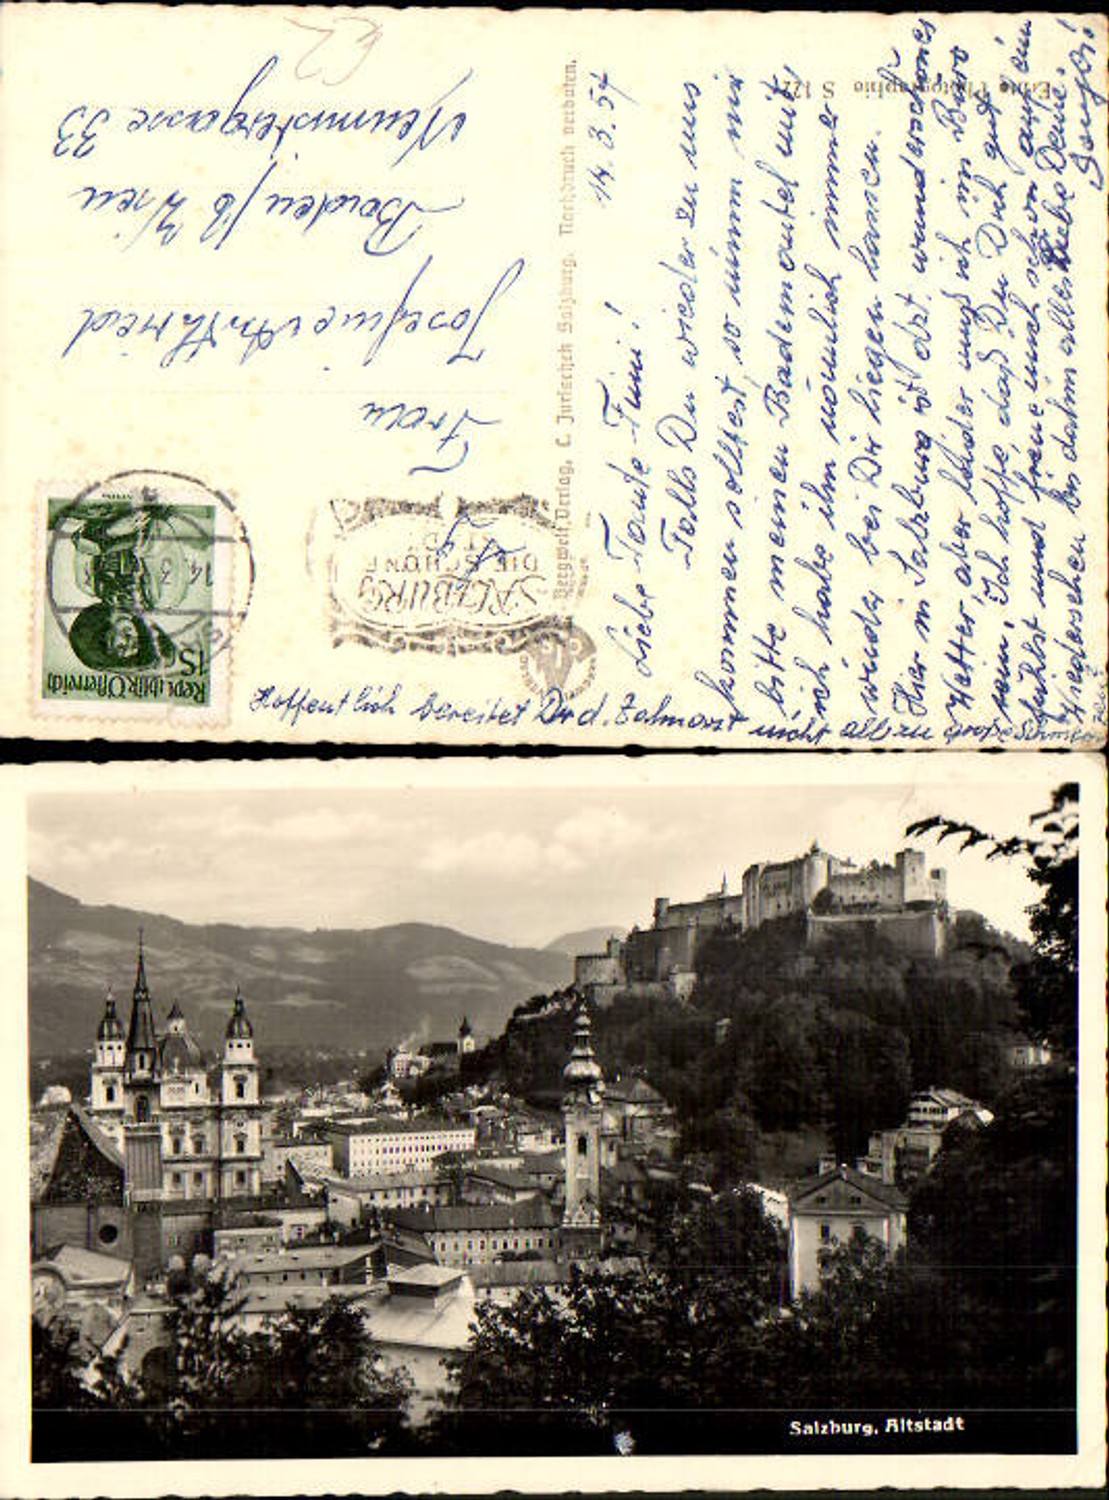 14.3.54
Liebe Tante Fini!
Falls Du wieder zu uns
kommen solltest, so nimm mir
bitte meinen Bademantel mit,
ich habe ihn nämlich immer
wieder bei Dir liegen lassen.
Hier in Salzburg ist dzt. wunderschönes
Wetter, aber leider muß ich im Büro
sein. Ich hoffe, daß Du Dich gut
fühlst und freue mich schon auf ein
Wiedersehen bis dahin alles Liebe Deine
Hoffentlich bereitet Dir d. Zahnarzt nicht allzu große Schmerzen
Frau
Josefine
Baden / b Wien
Neumistergasse 33
Republik Österreich
1S
14. 3
SALZBURG
DIE SCHÖNE
STADT
Bergwelt-Verlag, C. Jurischek Salzburg. Nachdruck verboten.
Echte Photographie S
Salzburg, Altstadt